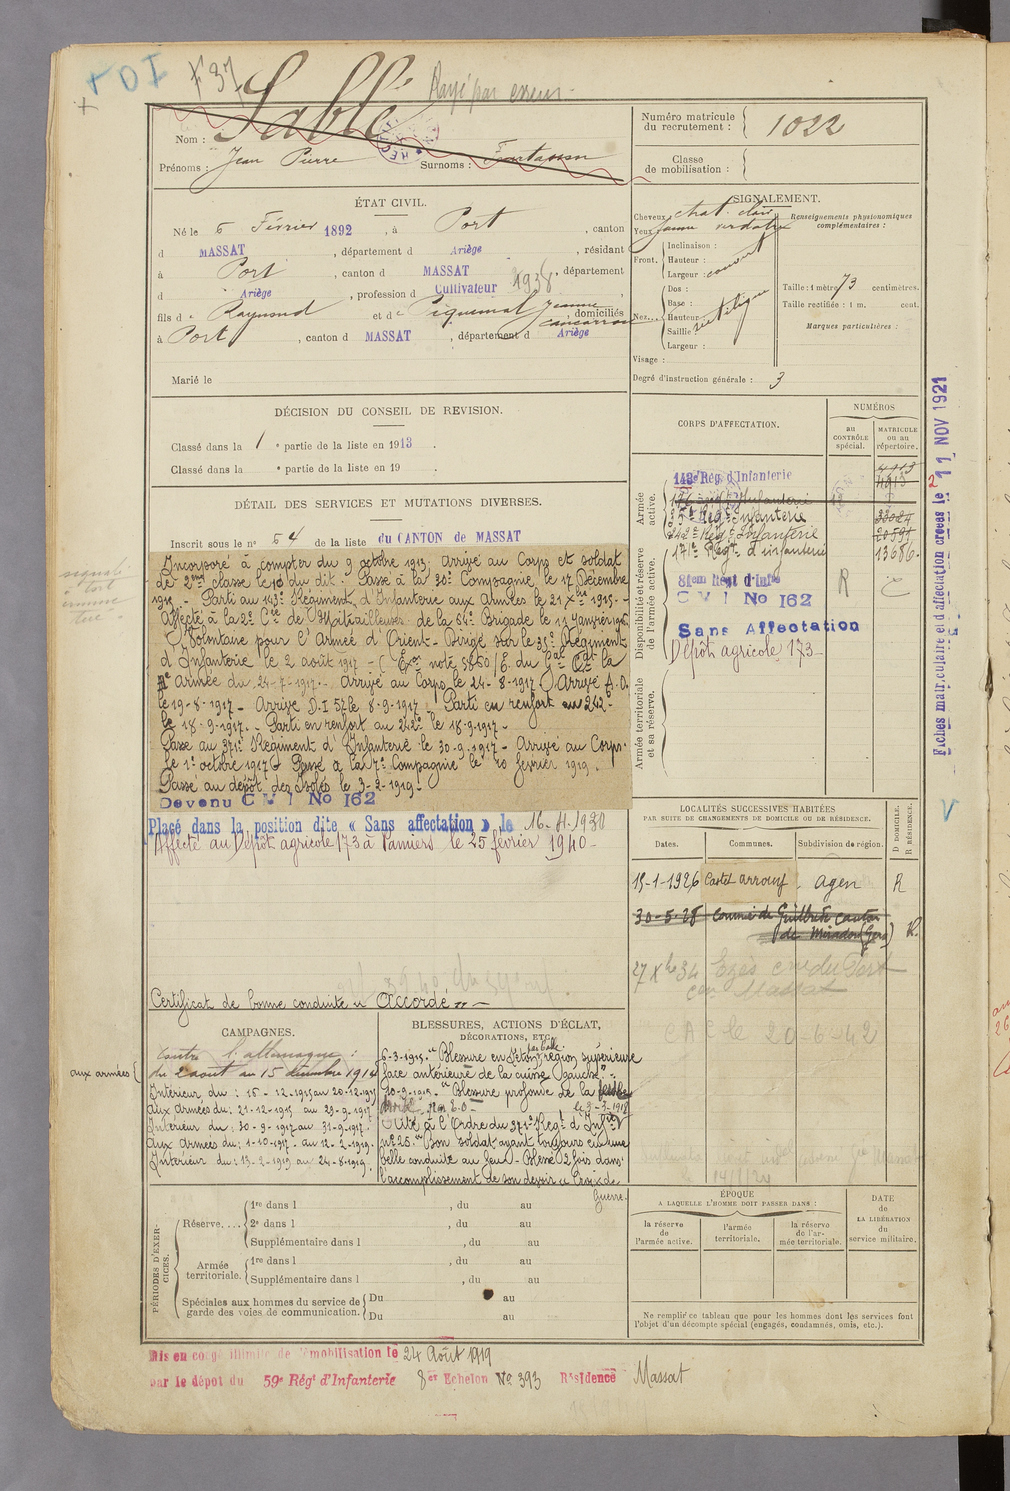 + DI
F 37
Rayé par erreur.
Nom : Sablé
Prénoms : Jean Pierre Surnoms :
Numéro matricule du recrutement : 1022
Classe de mobilisation :
ÉTAT CIVIL.
Né le 6 Février 1892, à Port, canton
d MASSAT, département d Ariège, résidant
à Port, canton d MASSAT, département
d Ariège, profession d Cultivateur 1938
fils de Raymond et de Piquemal Jeanne domiciliés
à Port, canton d MASSAT, département d Ariège
Marié le
SIGNALEMENT.
Cheveux chat. clair
Yeux jaune verdâtre
Front. Inclinaison :
Hauteur :
Largeur : couvert
Nez... Dos :
Base :
Hauteur :
Saillie
Largeur :
Visage :
Degré d'instruction générale : 3
Renseignements physionomiques complémentaires :
Taille : 1 mètre 73 centimètres.
Taille rectifiée : 1 m. cent.
Marques particulières :
DÉCISION DU CONSEIL DE REVISION.
Classé dans la 1e partie de la liste en 1913.
Classé dans la e partie de la liste en 19 .
DÉTAIL DES SERVICES ET MUTATIONS DIVERSES.
Inscrit sous le no 54 de la liste du CANTON de MASSAT
Incorporé à compter du 9 octobre 1913. Arrivé au Corps et soldat
de 2me classe le 10 du dit. Passé à la 30e Compagnie le 17 Décembre
1914. - Parti au 143e Régiment d'Infanterie aux Armées le 21 Xbre 1915. -
Affecté à la 2e Cie de Mitrailleuses de la 64e Brigade le 11 Janvier 1916
Volontaire pour l'Armée d'Orient - Dirigé sur le 35e Régiment
d'Infanterie le 2 août 1917 - (Exon note 5850/E. du Gal Cdt la
Armée du 24-7-1917. - Arrivé au Corps le 24-8-1917 Arrivé A.O.
le 19-8-1917 - Arrivé D.I 57 le 8-9-1917 Parti en renfort au 242e
le 18-9-1917. - Parti en renfort au 242e le 18-9-1917 -
Passé au 371e Régiment d'Infanterie le 30-9-1917 - Arrivé au Corps
le 1er octobre 1917 - Passé à la 7e Compagnie le 10 février 1919.
Passé au dépôt des Isolés le 3-2-1919 -
Devenu C M I No 162
Placé dans la position dite « Sans affectation » le 16-4-1930
Affecté au Dépôt agricole 173 à Pamiers le 25 février 1940 -
Certificat de bonne conduite "Accordé" -
CORPS D'AFFECTATION.
NUMÉROS
au CONTRÔLE spécial.
MATRICULE ou au répertoire.
Armée active.
143e Rég. d'Infanterie
4913
35e Régt Infanterie
242e Régt Infanterie
20591
Disponibilité et réserve de l'armée active.
171e Régt d'infanterie 13686
81em Régt d'Infie
C M I No 162
R
Sans Affectation
Dépôt agricole 173
Armée territoriale et sa réserve.
Fiches matriculaire et d'affectation créées le 11 NOV 1921
LOCALITÉS SUCCESSIVES HABITÉES
PAR SUITE DE CHANGEMENTS DE DOMICILE OU DE RÉSIDENCE.
Dates. Communes. Subdivision de région. D DOMICILE. R RÉSIDENCE.
15-1-1926 Castet arrouy Agen R
30-5-28 de Miradoux (Gers) R.
27 Xbre 34 cne du Port
con Massat
C A C le 20-6-42
CAMPAGNES.
Contre l'allemagne :
aux armées du 2 aout au 15 décembre 1914
Intérieur du : 16-12-1914 au 20-12-1915
aux Armées du : 21-12-1915 au 29-9-1917
Intérieur du : 30-9-1917 au 31-9-1917
Aux Armées du : 1-10-1917 au 12-2-1919
Intérieur du : 13-2-1919 au 24-8-1919.
BLESSURES, ACTIONS D'ÉCLAT,
DÉCORATIONS, ETC.
6-3-1915. Blessure en Séton par balle région supérieure
face antérieure de la cuisse gauche".
10-9-1915. Blessure profonde de la
par E.O - le 3-3-1918
Cité à l'Ordre du 371e Régt d'Infie
no 26. "Bon soldat ayant toujours eu une
belle conduite au feu. Blessé 2 fois dans
l'accomplissement de son devoir" Croix de
Guerre.
PÉRIODES D'EXERCICES.
Réserve.... 1re dans l , du au
2e dans l , du au
Supplémentaire dans l , du au
Armée territoriale. 1re dans l , du au
Supplémentaire dans l , du au
Spéciales aux hommes du service de garde des voies de communication. Du au
Du au
ÉPOQUE
A LAQUELLE L'HOMME DOIT PASSER DANS :
la réserve de l'armée active. l'armée territoriale. la réserve de l'armée territoriale.
DATE DE LA LIBÉRATION du service militaire.
Ne remplir ce tableau que pour les hommes dont les services font
l'objet d'un décompte spécial (engagés, condamnés, omis, etc.).
Mis en congé illimité de démobilisation le 24 Août 1919
par le dépôt du 59e Régt d'Infanterie 8er Echelon No 393 Résidence Massat